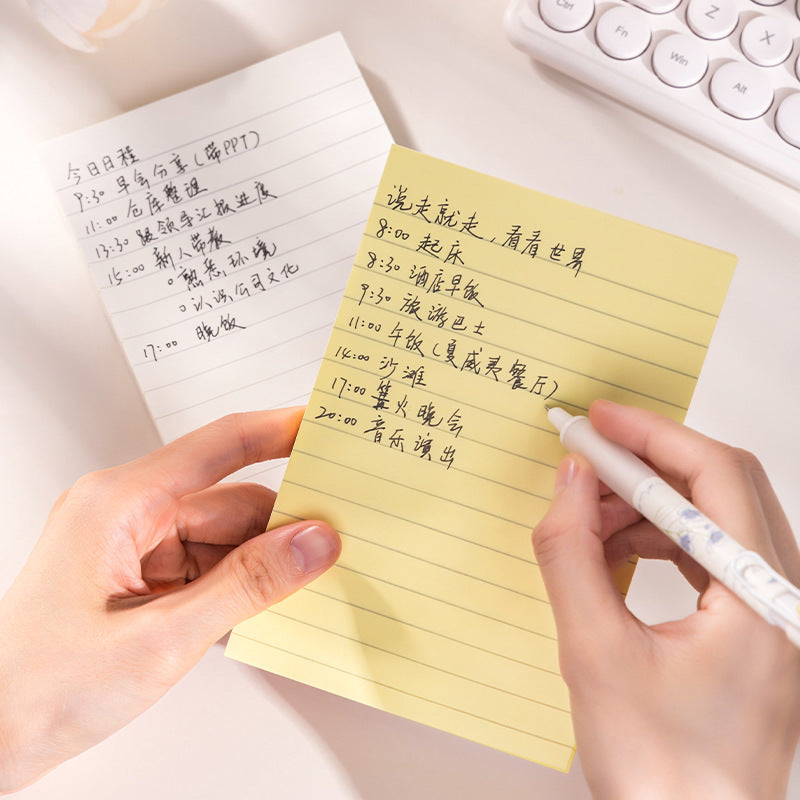 今日日程
9:30 早会分享(带PPT)
11:00 仓库整理
13:30 跟领导汇报进度
15:00 新人带教
熟悉环境
认识公司文化
17:00 晚饭
说走就走,看看世界
8:00 起床
8:30 酒店早饭
9:30 旅游巴士
11:00 午饭(夏威夷餐厅)
14:00 沙滩
17:00 篝火晚会
20:00 音乐演出
Ctrl
Fn
Win
Alt
Z
X